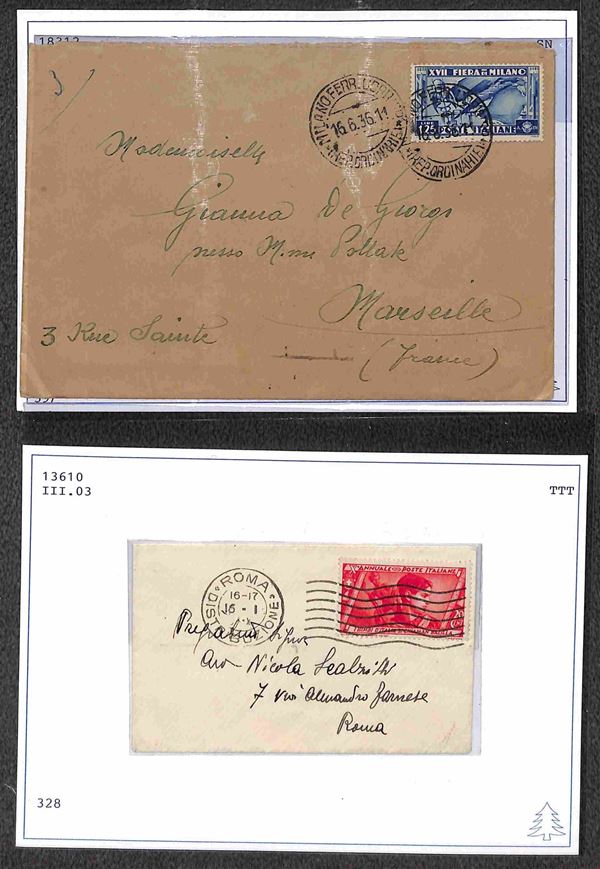 18312
SN
3
MILANO FERR.
16.6.36.11
ARR.E P. ORDINARIE
XVII FIERA DI MILANO
LIRE 1,25 POSTE ITALIANE
Mademoiselle
Gianna De Giorgi
presso M.me Pollak
Marseille
3 Rue Sainte
(France)
13610
III.03
TTT
ROMA
DISTRIBUZIONE
16-17
16 - 1
X ANNUALE POSTE ITALIANE
Nicola
7 via Alessandro Farnese
Roma
328